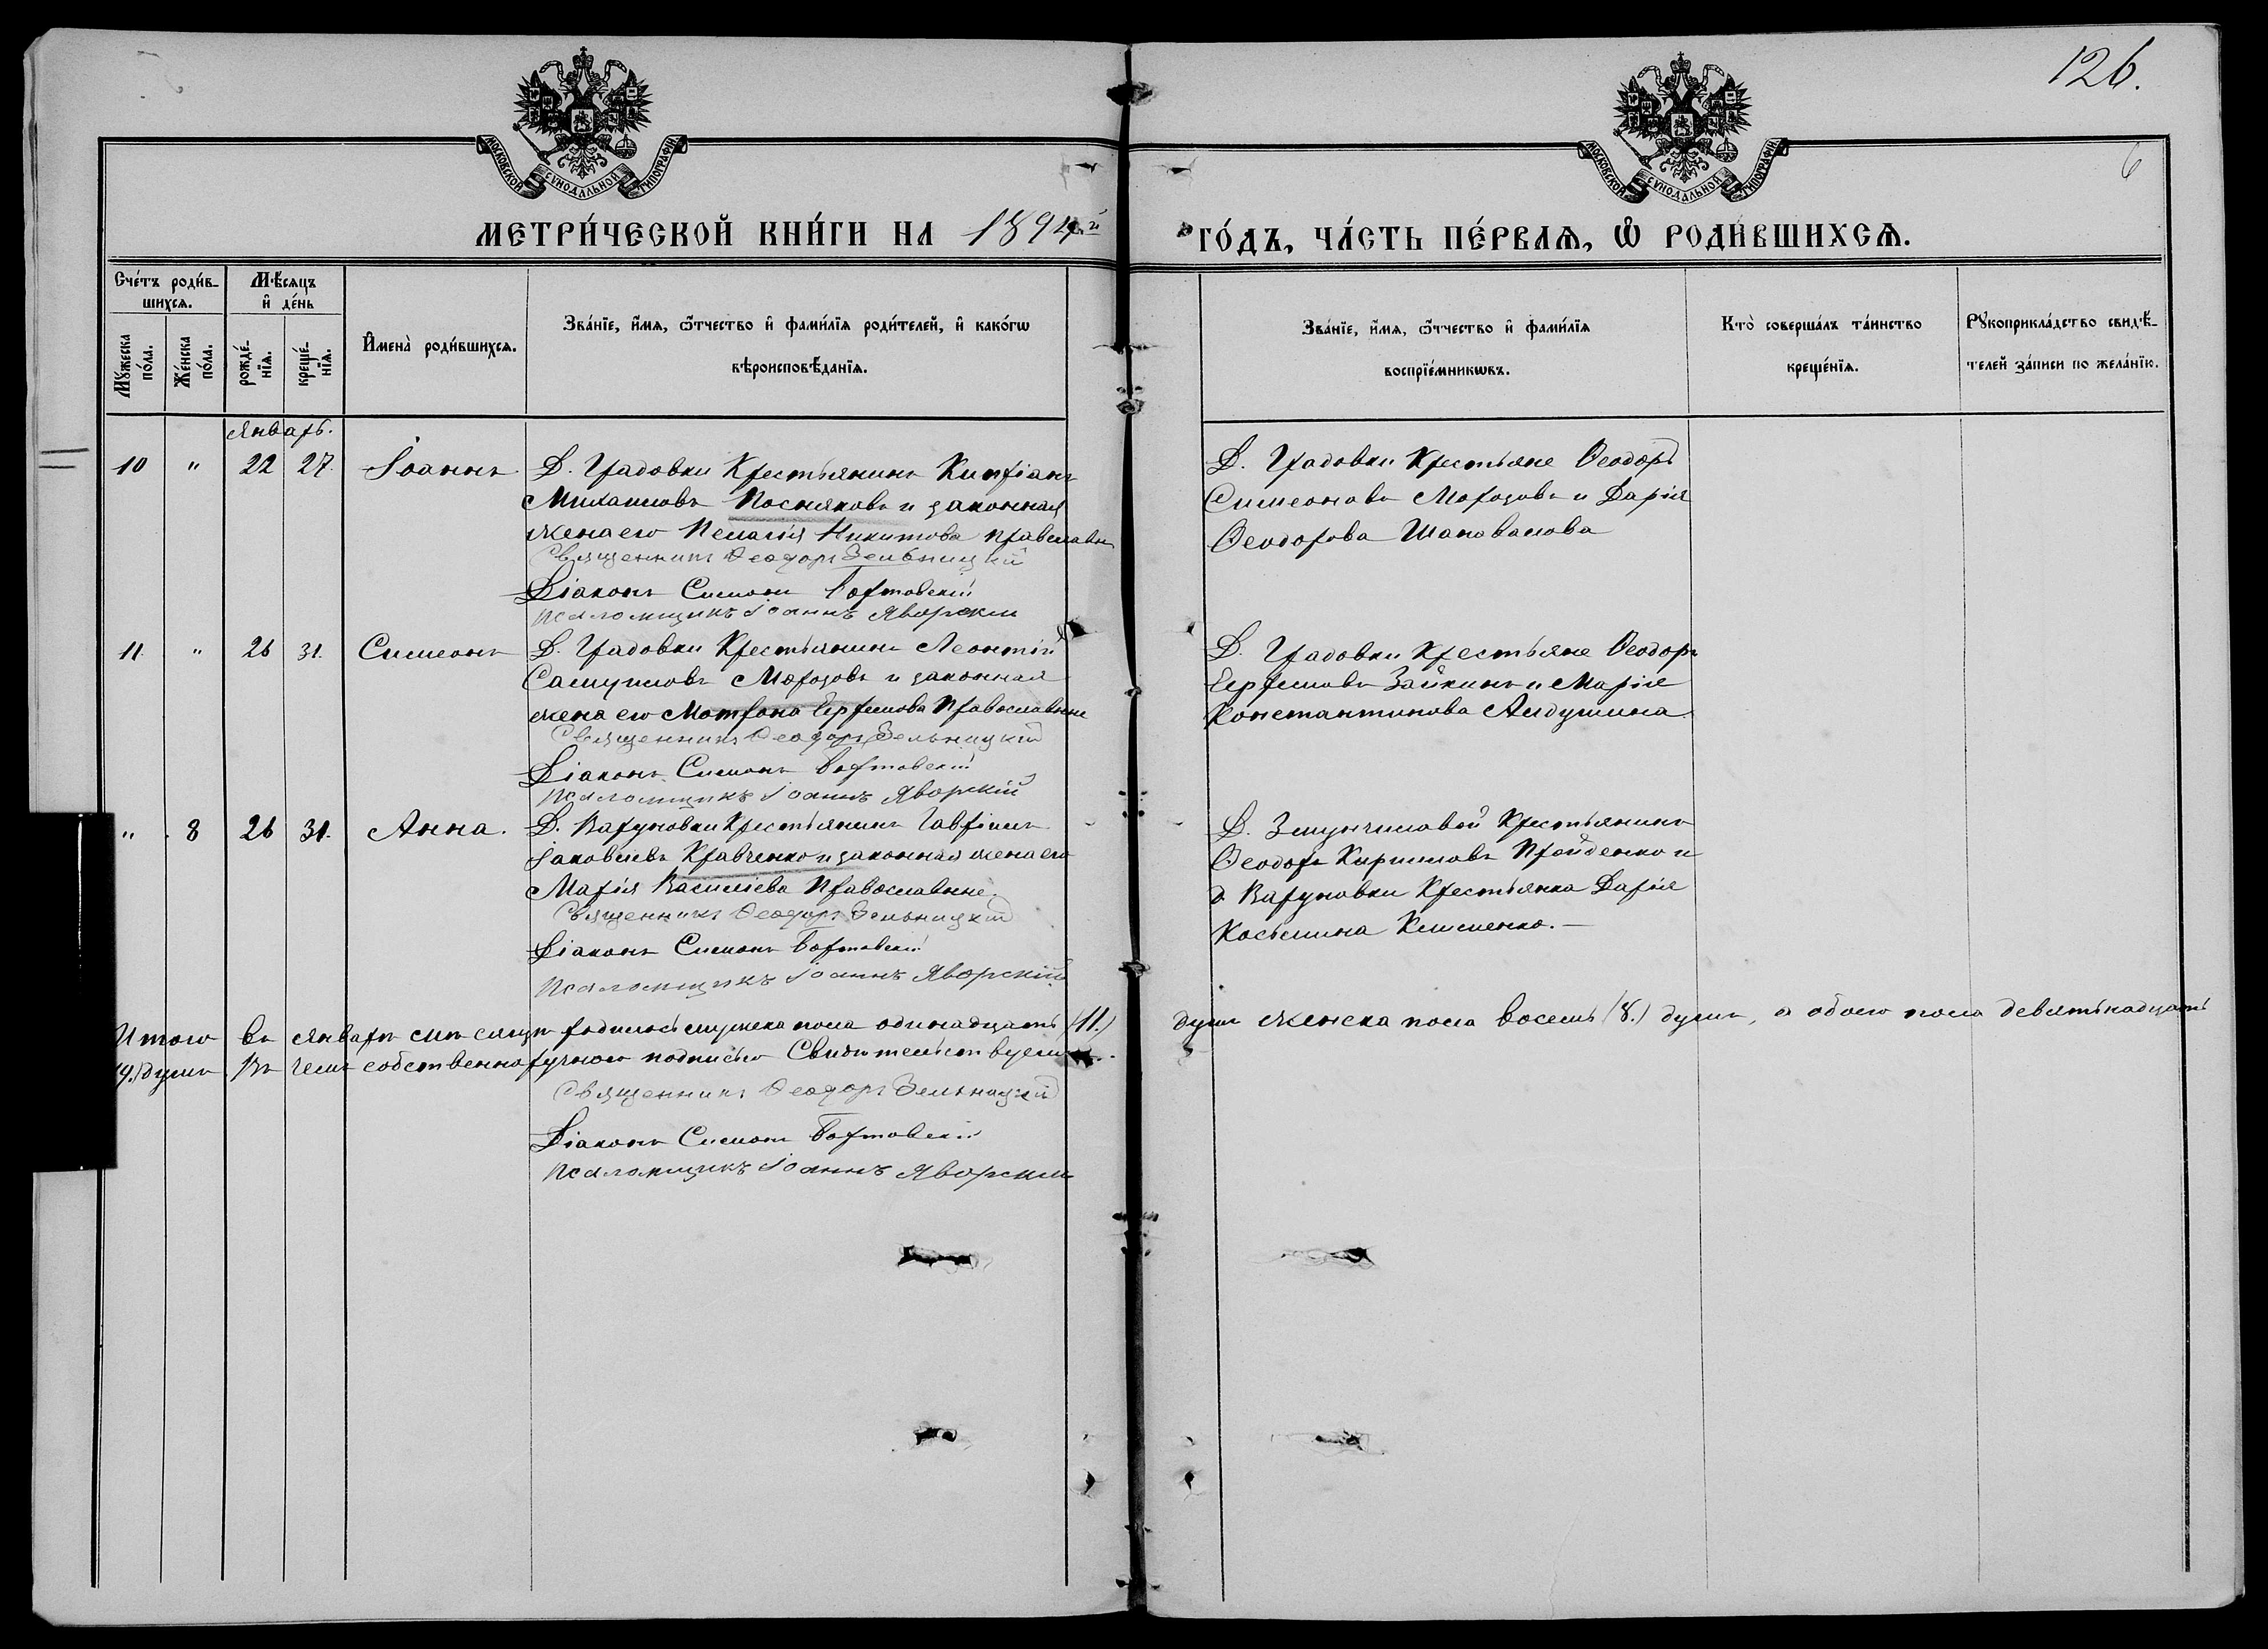 126.
6
МОСКОВСКОЙ СѴНОДАЛЬНОЙ ТИПОГРАФІИ
МОСКОВСКОЙ СѴНОДАЛЬНОЙ ТИПОГРАФІИ
МЕТРИ́ЧЕСКОЙ КНИ́ГИ НА 1894й ГО́ДЪ, ЧА́СТЬ ПЕ́РВАѦ, Ѡ҆ РОДИ́ВШИХСѦ.
Сче́тъ роди́в-
шихсѧ.
Мѣ́сѧцъ
и҆ де́нь
Мꙋ́жеска по́ла.
Же́нска по́ла.
рожде́-нїѧ.
креще́-нїѧ.
И҆мена̀ роди́вшихсѧ.
Зва́нїе, и҆́мѧ, ѻ҆́тчество и҆ фами́лїѧ роди́телей, и҆ како́гѡ
вѣроисповѣ́данїѧ.
Зва́нїе, и҆́мѧ, ѻ҆́тчество и҆ фами́лїѧ
воспрїе́мникѡвъ.
Кто̀ соверша́лъ та́инство
креще́нїѧ.
Рꙋкоприкла́дство свидѣ́-
телей за́писи по жела́нїю.
Январь.
10 " 22 27. Іоаннъ
Д. Градовки Крестьянинъ Кипріанъ
Михаиловъ Посняковъ и законная
жена его Пелагія Никитова православн
Священникъ Ѳеодоръ Зельницкій
Діаконъ Симонъ Бортовскій
Псаломщикъ Іоаннъ Яворскій
Д. Градовки Крестьяне Ѳеодоръ
Симеоновъ Морозовъ и Дарія
Ѳеодорова Шаповалова
11. " 26 31. Симеонъ
Д. Градовки Крестьянинъ Леонтій
Самуиловъ Морозовъ и законная
жена его Матрона Ефремова Православные
Священникъ Ѳеодоръ Зельницкій
Діаконъ Симонъ Бортовскій
Псаломщикъ Іоаннъ Яворскій
Д. Градовки Крестьяне Ѳеодоръ
Ефремовъ Зайкинъ и Марія
Константинова
" 8 26 31. Анна.
Д. Варуновки Крестьянинъ Гавріилъ
Іаковлевъ Кравченко и законная жена его
Марія Василіева Православные.
Священникъ Ѳеодоръ Зельницкій
Діаконъ Симонъ Бортовскій
Псаломщикъ Іоаннъ Яворскій
Д. Крестьянинъ
Ѳеодоръ Кирилловъ и
д. Варуновки Крестьянка Дарія
Косьмина Клименко.
Итого въ январѣ мѣсяцѣ родилось мужеска пола одинадцать (11.) душъ женска пола восемь (8.) душъ, а обоего пола девятьнадцать
19.) душъ. Въ чемъ собственноручною подписью Свидѣтельствуемъ.
Священникъ Ѳеодоръ Зельницкій
Діаконъ Симонъ Бортовскій
Псаломщикъ Іоаннъ Яворскій